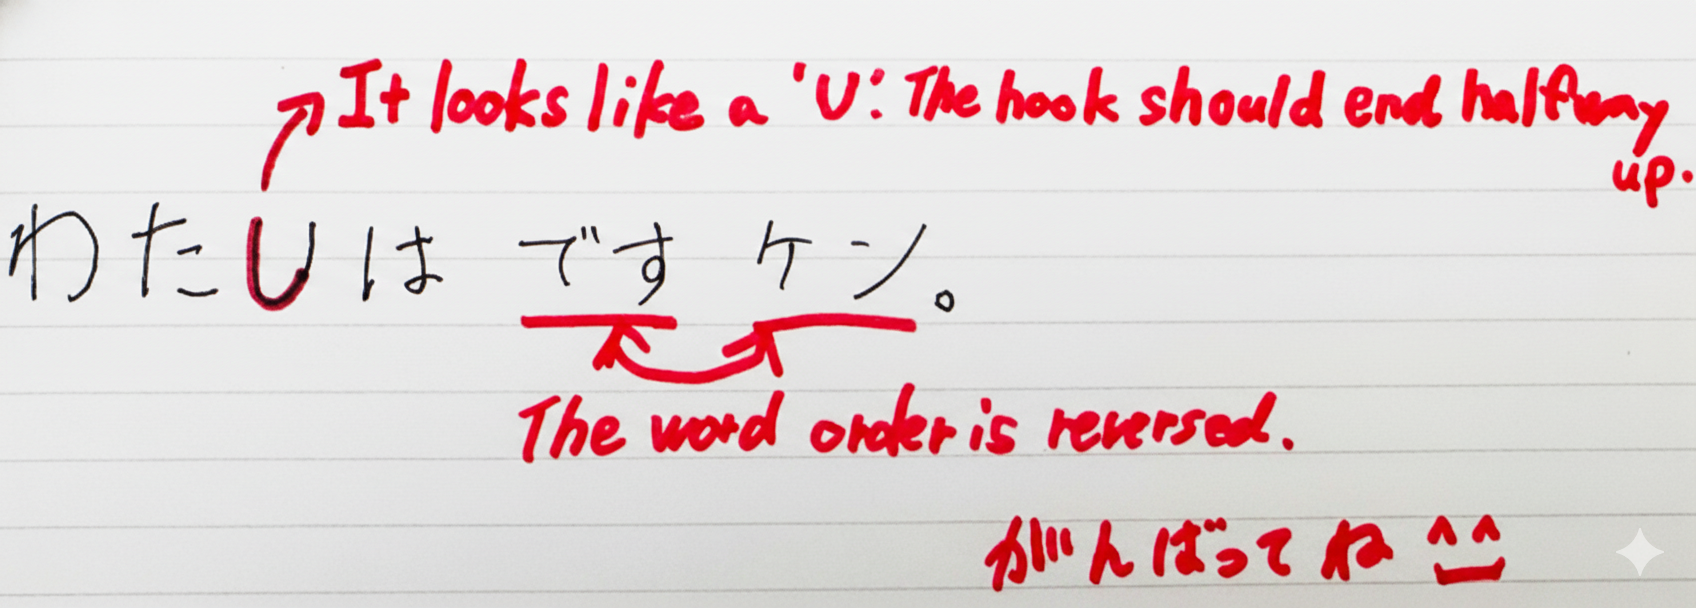 It looks like a 'U'. The hook should end halfway
up.
わたUは です ケン。
The word order is reversed.
がんばってね ^^